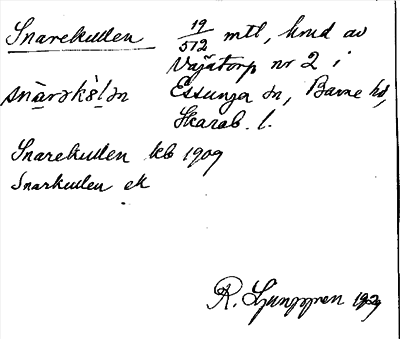 Snarekullen 19/512 mtl, hmd av
Vajatorp nr 2 i
snàrəkè̀lən Essunga sn, Barne hd,
Skarab. l.
Snarekullen kb 1909
Snarkullen ek
R. Ljunggren 1929